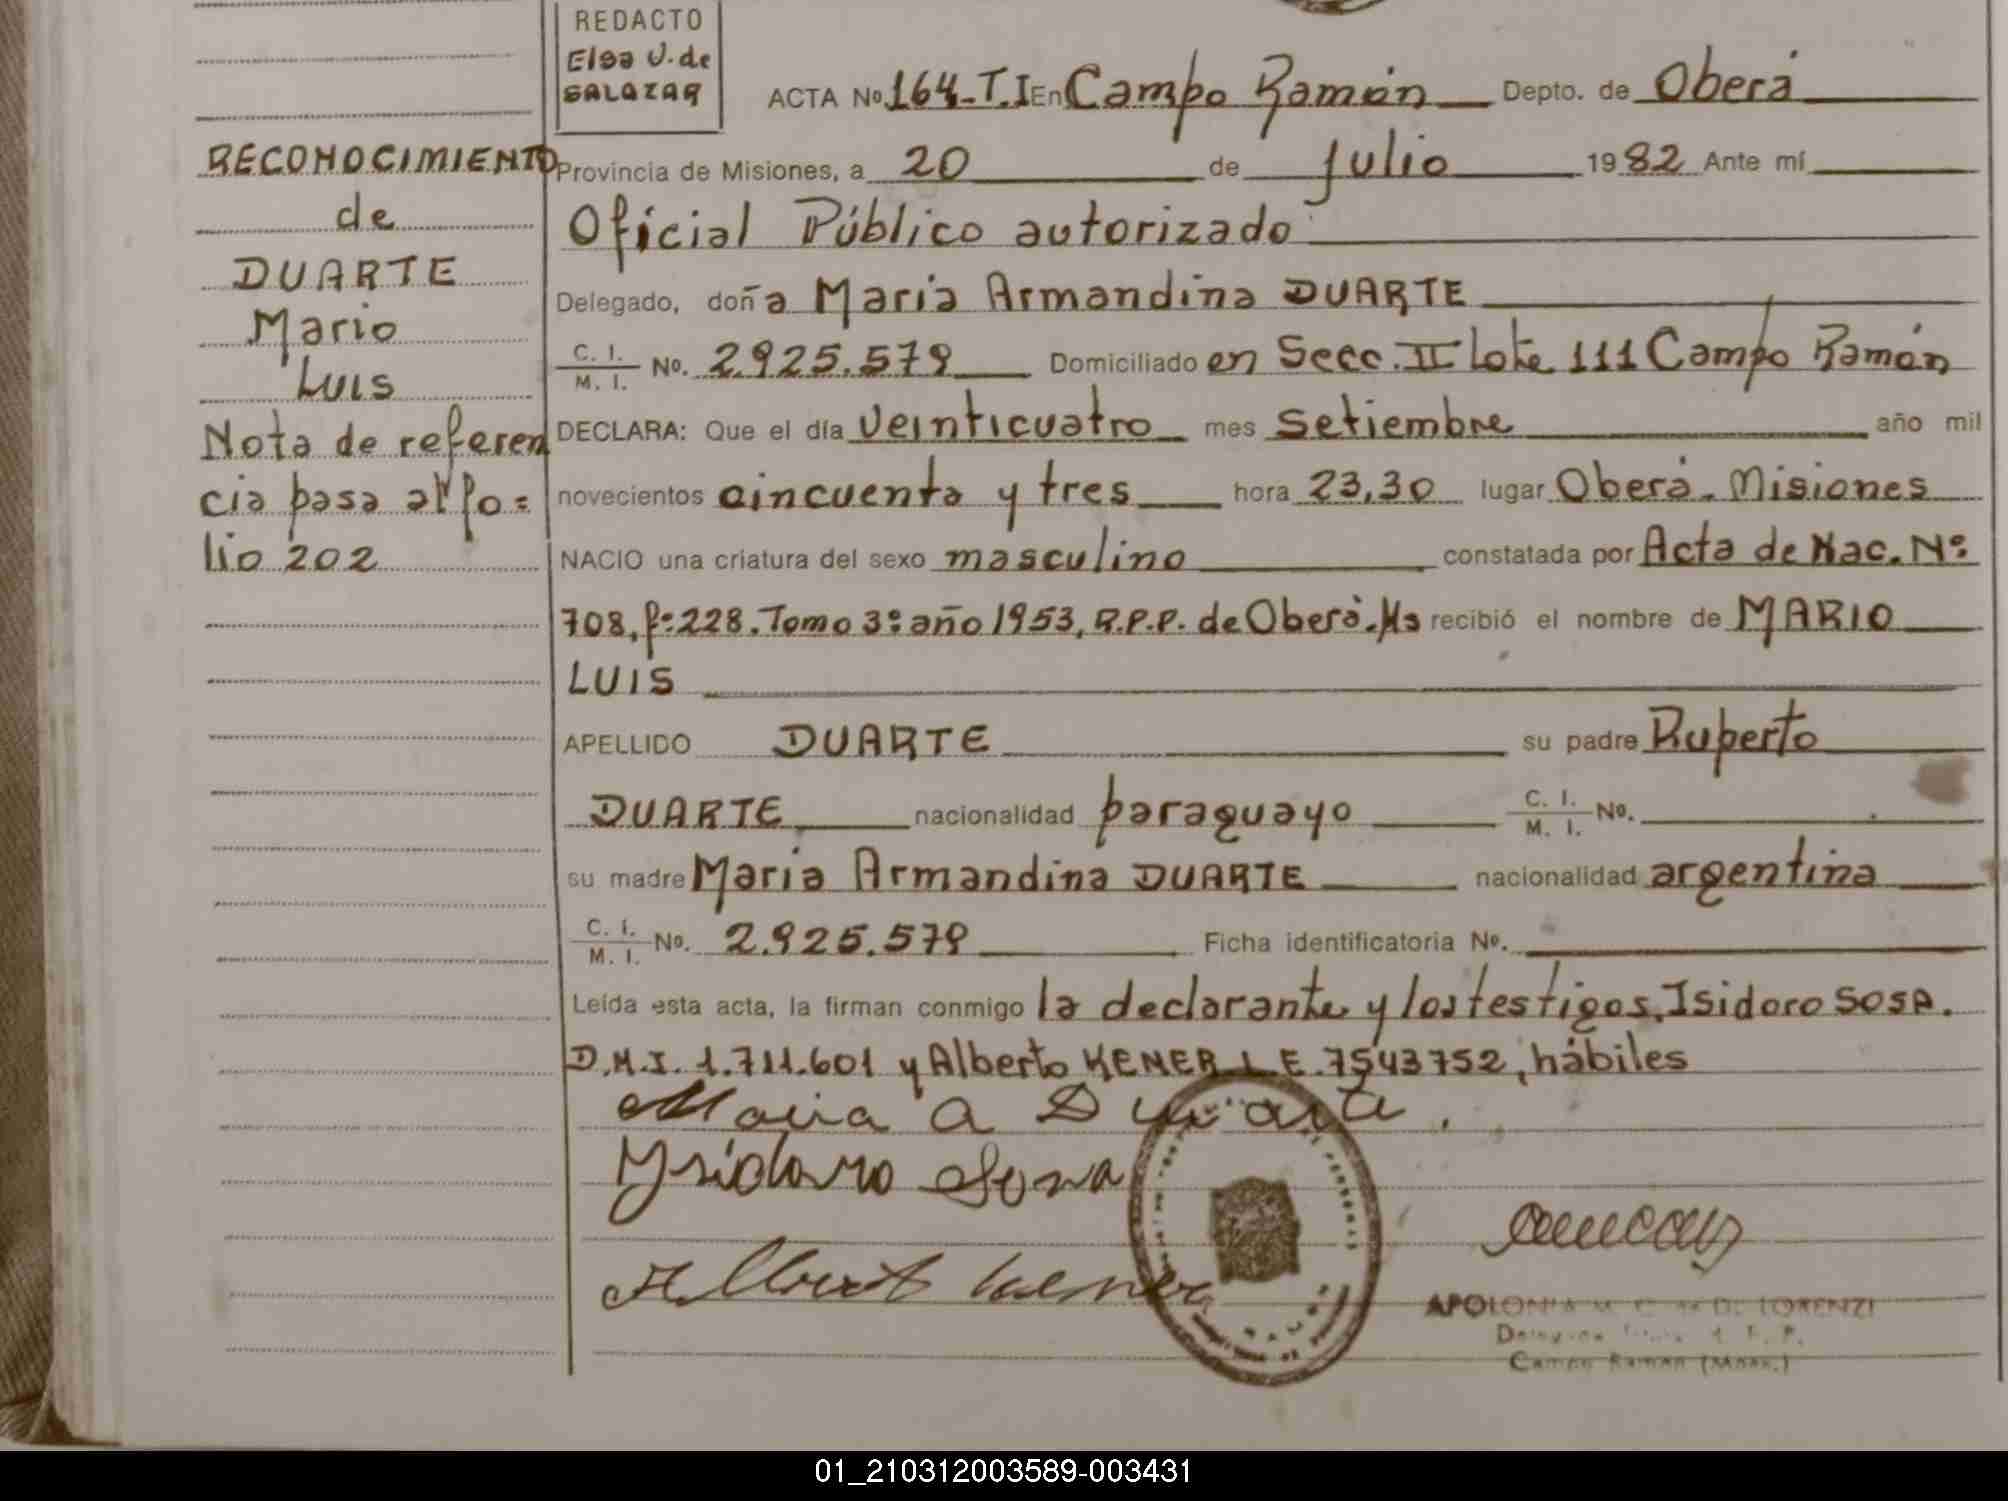 REDACTO
Elsa V. de
SALAZAR
ACTA No 164-T.I En Campo Ramón Depto. de Oberá
RECONOCIMIENTO
de
DUARTE
Mario
LUIS
Nota de referen
cia pasa al fo=
lio 202
Provincia de Misiones, a 20 de julio 1982 Ante mí
Oficial Público autorizado
Delegado, doña Maria Armandina DUARTE
C. I.
M. I. No. 2.925.579 Domiciliado en Secc. II Lote 111 Campo Ramón
DECLARA: Que el día veinticuatro mes setiembre año mil
novecientos cincuenta y tres hora 23,30 lugar Oberá. Misiones
NACIO una criatura del sexo masculino constatada por Acta de Nac. Nº
708, fº 228. Tomo 3º año 1953, R.P.P. de Oberá. Ms recibió el nombre de MARIO
LUIS
APELLIDO DUARTE su padre Ruperto
DUARTE nacionalidad paraguayo C. I.
M. I. No.
su madre Maria Armandina DUARTE nacionalidad argentina
C. I.
M. I. No. 2.925.579 Ficha identificatoria No.
Leída esta acta, la firman conmigo la declarante y los testigos, Isidoro SOSA.
D.M.I. 1.711.601 y Alberto KENER L.E. 7543752, hábiles
Maria A Duarte.
Ysidoro Sosa
Alberto Kener
APOLONIA M. C. de DE LORENZI
Campo Ramon (Mnes.)
01_210312003589-003431